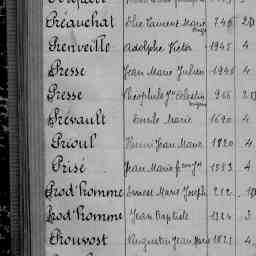 Préauchat Elie Laurent Marie 746 2D
Prenveille Adolphe Victor 1945 4
Presse Jean Marie Julien 1946 4
Presse Théophile Jn Célestin 966 2D
Prévault Emile Marie 1690 4
Prioul Henri Jean Marie 1820 4
Prisé Jean Marie 1583 4
Prod'homme Ernest Marie Joseph 212
Prod'homme Jean Baptiste 1324 3
Prouvost Augustin Jean Marie 1821 4